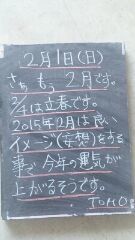 2月1日(日)
さぁ もう 2月です。
2/4は立春です。
2015年2月は良い
イメージ(妄想)をする
事で今年の運気が
上がるそうです。
TOMO